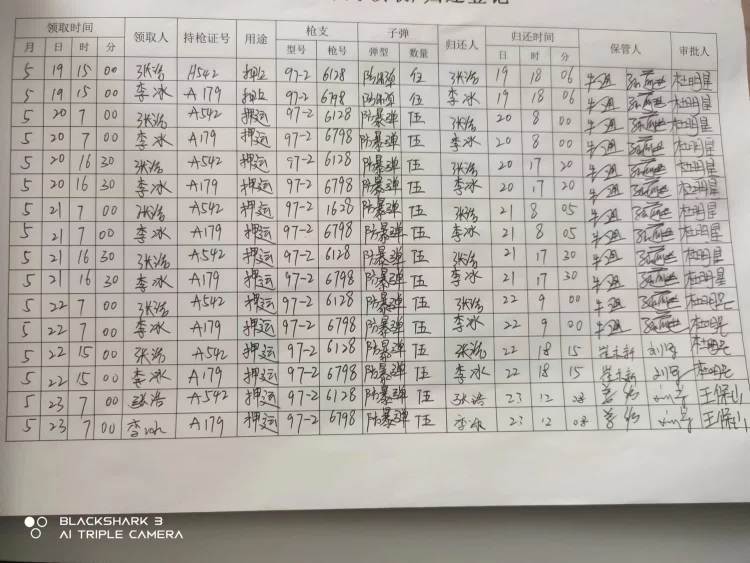 归还登记
领取时间 领取人 持枪证号 用途 枪支 子弹 归还人 归还时间 保管人 审批人
月 日 时 分 型号 枪号 弹型 数量 日 时 分
5 19 15 00 张治 A542 押运 97-2 6128 防暴弹 伍 张治 19 18 06 杜明星
5 19 15 00 李冰 A179 押运 97-2 6798 防暴弹 伍 李冰 19 18 06 杜明星
5 20 7 00 张治 A542 押运 97-2 6128 防暴弹 伍 张治 20 8 00 杜明星
5 20 7 00 李冰 A179 押运 97-2 6798 防暴弹 伍 李冰 20 8 00 杜明星
5 20 16 30 张治 A542 押运 97-2 6128 防暴弹 伍 张治 20 17 20 杜明星
5 20 16 30 李冰 A179 押运 97-2 6798 防暴弹 伍 李冰 20 17 20 杜明星
5 21 7 00 张治 A542 押运 97-2 1628 防暴弹 伍 张治 21 8 05 杜明星
5 21 7 00 李冰 A179 押运 97-2 6798 防暴弹 伍 李冰 21 8 05 杜明星
5 21 16 30 张治 A542 押运 97-2 6128 防暴弹 伍 张治 21 17 30 杜明星
5 21 16 30 李冰 A179 押运 97-2 6798 防暴弹 伍 李冰 21 17 30 杜明星
5 22 7 00 张治 A542 押运 97-2 6128 防暴弹 伍 张治 22 9 00 杜明星
5 22 7 00 李冰 A179 押运 97-2 6798 防暴弹 伍 李冰 22 9 00 杜明星
5 22 15 00 张治 A542 押运 97-2 6128 防暴弹 伍 张治 22 18 15 杜明星
5 22 15 00 李冰 A179 押运 97-2 6798 防暴弹 伍 李冰 22 18 15 杜明星
5 23 7 00 张治 A542 押运 97-2 6128 防暴弹 伍 张治 23 12 08 王保山
5 23 7 00 李冰 A179 押运 97-2 6798 防暴弹 伍 李冰 23 12 08 王保山
BLACKSHARK 3
AI TRIPLE CAMERA